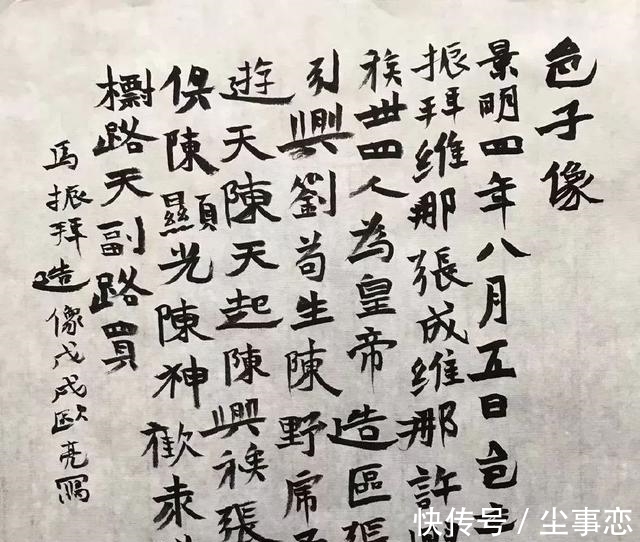 邑子像
景明四年八月五日邑主
振拜維那張成維那許
族丗四人為皇帝造區張
引興劉苟生陳野席
遊天陳天起陳興族張
俱陳顯光陳神歡
檦路天副路買
馬振拜造像戊戌歐亮寫
快传号 / 尘事恋